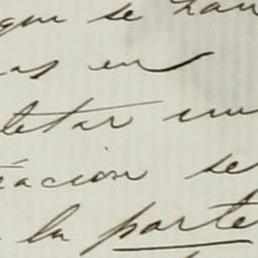 que se han
as en
letar un
ración se
la parte